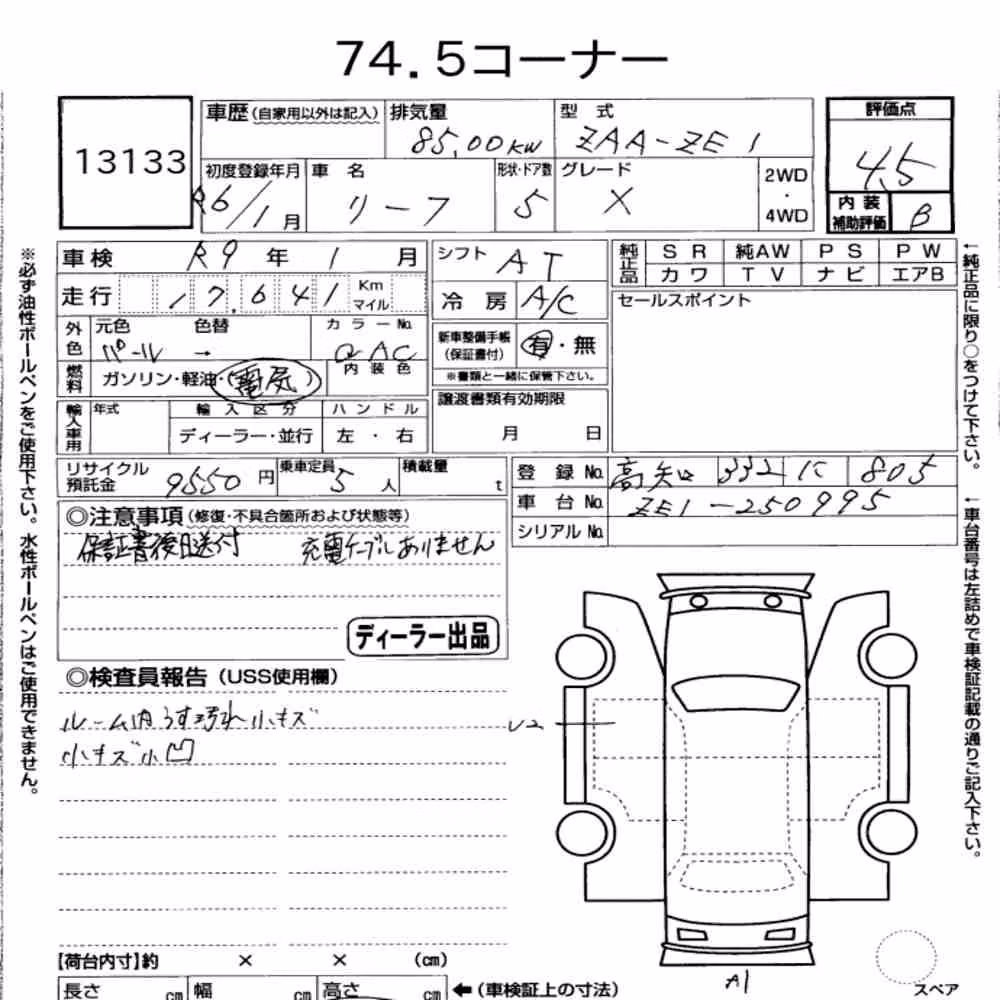 74.5コーナー
13133
車歴(自家用以外は記入) 排気量 85.00KW 型式 ZAA-ZE1
評価点 4.5
内装補助評価 B
初度登録年月 R6/1月 車名 リーフ 形状・ドア数 5 グレード X 2WD・4WD
車検 R9年 1月 シフト AT
走行 17,641 Km マイル 冷房 A/C
純正品 SR 純AW PS PW
カワ TV ナビ エアB
セールスポイント
外色 元色 パール 色替 → カラーNo. QAC
新車整備手帳(保証書付) 有・無
※書類と一緒に保管下さい。
燃料 ガソリン・軽油・(電気) 内装色
譲渡書類有効期限 月 日
輸入車用 年式 輸入区分 ハンドル
ディーラー・並行 左・右
リサイクル預託金 9550円 乗車定員 5人 積載量 t
登録No. 高知 332 に 805
車台No. ZE1-250995
シリアルNo.
◎注意事項(修復・不具合箇所および状態等)
保証書後日送付 充電ケーブルありません
ディーラー出品
◎検査員報告(USS使用欄)
ルーム内うす汚れ 小キズ
小キズ小凹
U2
A1
スペア
【荷台内寸】約 × × (cm)
長さ cm 幅 cm 高さ cm ←(車検証上の寸法)
※必ず油性ボールペンをご使用下さい。水性ボールペンはご使用できません。
←純正品に限り○をつけて下さい。
←車台番号は左詰めで車検証記載の通りご記入下さい。